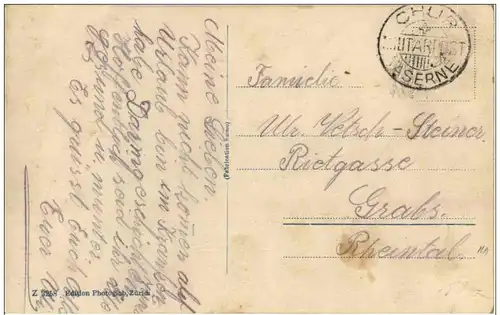 Meine Lieben.
Kann nicht kommen auf
Urlaub bin im Kranken
habe
Hoffentlich seid ihr alle
gesund u. munter.
Es grüsst Euch alle
Euer
Z 2268 Edition Photoglob, Zürich
(Fabrication Suisse)
CHUR
MILITÄRPOST
KASERNE
Familie
Ulr. Vetsch-Steiner
Rietgasse
Grabs.
Rheintal.